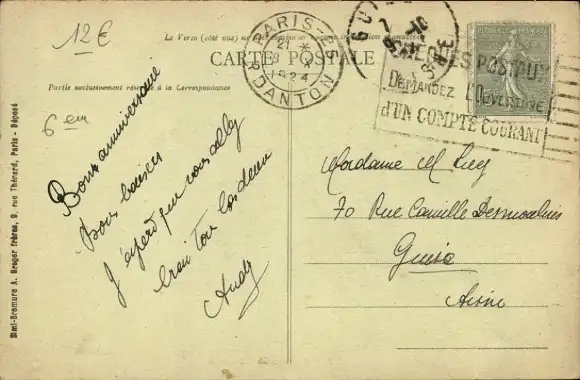 12 €
Le Verso (côté vue) ne
CARTE POSTALE
Partie exclusivement réservée à la Correspondance
6 em
PARIS
21
8 X
1924
DANTON
CHEQUES POSTAUX
DEMANDEZ L'OUVERTURE
d'UN COMPTE COURANT
Bonne anniversaire
Bons baisers
J'espère que vous allez
Andy
Madame M
70 Rue Camille Desmoulins
Guise
Aisne
Simi-Bromure A. Breger frères, 9, rue Thénard, Paris - Déposé